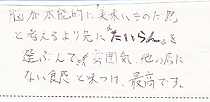 脳が本能的に"美味いものだ!!"
と考えるより先に"たいらん"を
選ぶんです。雰囲気、他の店に
ない食感と味つけ、最高です。